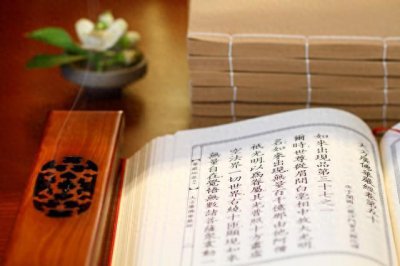 大方廣佛華嚴經卷第五十
如來出現品第三十七之一
爾時世尊從眉間白毫相中放大光明
名如來出現無量百千億那由他阿僧
祇光明以為眷屬其光普照十方盡虛
空法界一切世界右繞十匝顯現如來
無量自在覺悟無數諸菩薩眾震動